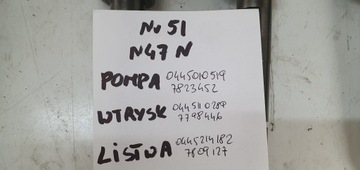 Nr 51
N47 N
POMPA 0445010519
7823452
WTRYSK 0445110289
7798446
LiSTWA 0445214182
7809127